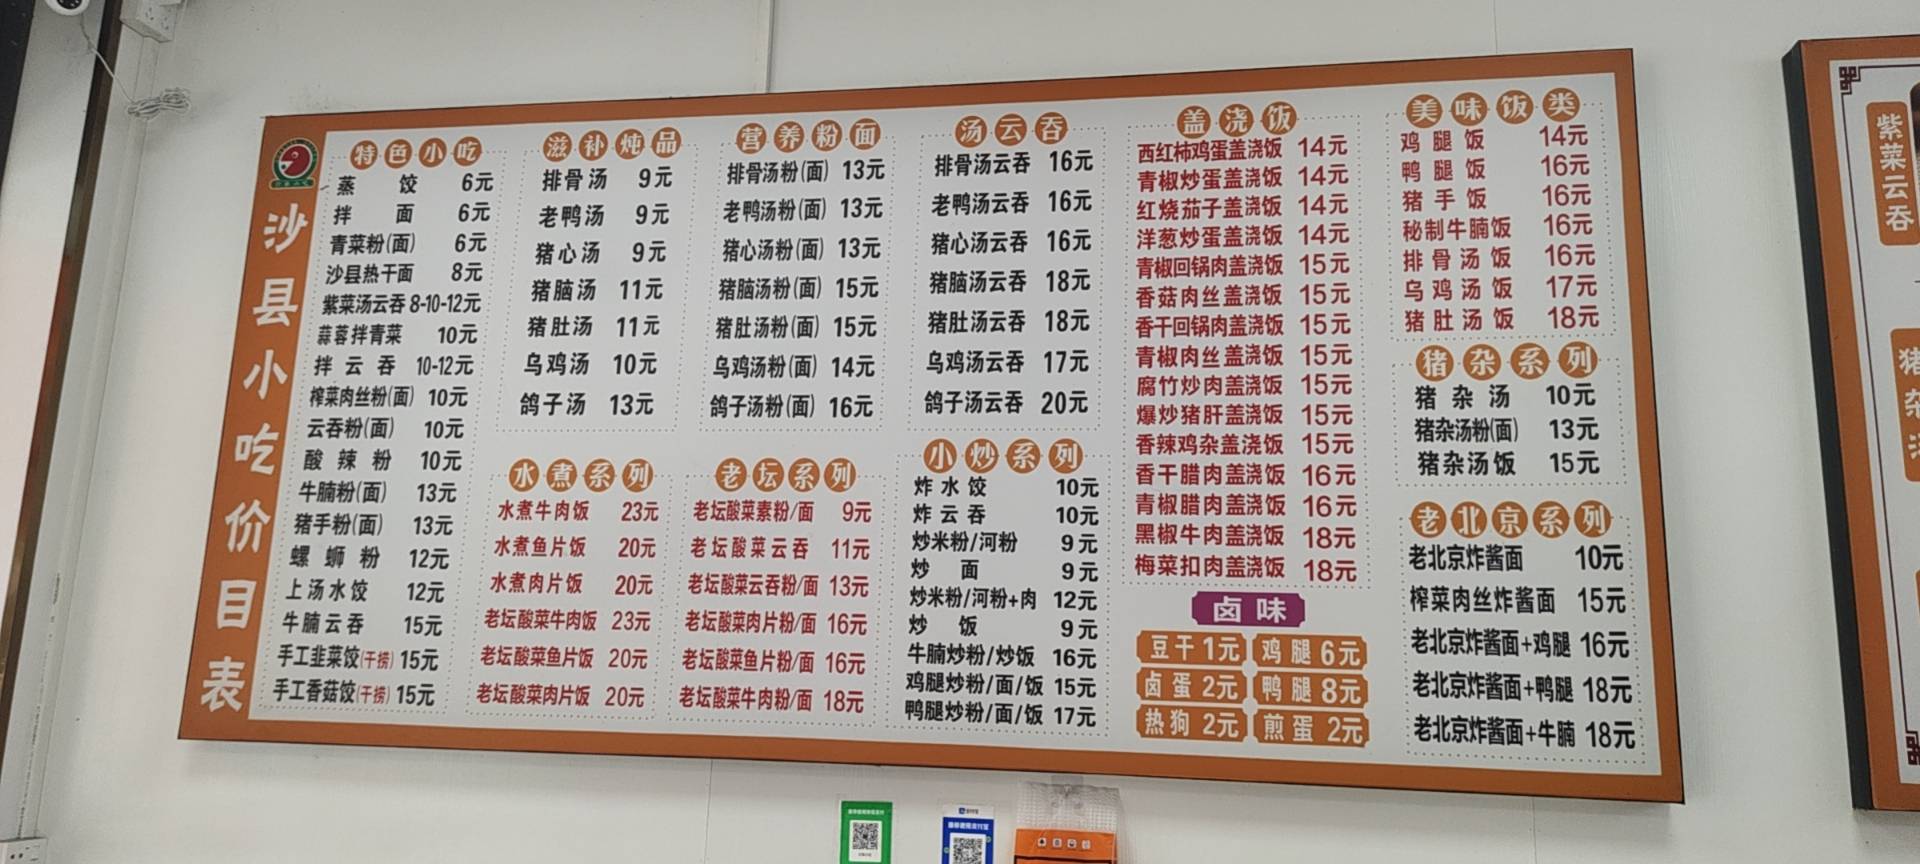 沙县小吃价目表
特色小吃
蒸饺 6元
拌面 6元
青菜粉(面) 6元
沙县热干面 8元
紫菜汤云吞 8-10-12元
蒜蓉拌青菜 10元
拌云吞 10-12元
榨菜肉丝粉(面) 10元
云吞粉(面) 10元
酸辣粉 10元
牛腩粉(面) 13元
猪手粉(面) 13元
螺蛳粉 12元
上汤水饺 12元
牛腩云吞 15元
手工韭菜饺(干捞) 15元
手工香菇饺(干捞) 15元
滋补炖品
排骨汤 9元
老鸭汤 9元
猪心汤 9元
猪脑汤 11元
猪肚汤 11元
乌鸡汤 10元
鸽子汤 13元
水煮系列
水煮牛肉饭 23元
水煮鱼片饭 20元
水煮肉片饭 20元
老坛酸菜牛肉饭 23元
老坛酸菜鱼片饭 20元
老坛酸菜肉片饭 20元
营养粉面
排骨汤粉(面) 13元
老鸭汤粉(面) 13元
猪心汤粉(面) 13元
猪脑汤粉(面) 15元
猪肚汤粉(面) 15元
乌鸡汤粉(面) 14元
鸽子汤粉(面) 16元
老坛系列
老坛酸菜素粉/面 9元
老坛酸菜云吞 11元
老坛酸菜云吞粉/面 13元
老坛酸菜肉片粉/面 16元
老坛酸菜鱼片粉/面 16元
老坛酸菜牛肉粉/面 18元
汤云吞
排骨汤云吞 16元
老鸭汤云吞 16元
猪心汤云吞 16元
猪脑汤云吞 18元
猪肚汤云吞 18元
乌鸡汤云吞 17元
鸽子汤云吞 20元
小炒系列
炸水饺 10元
炸云吞 10元
炒米粉/河粉 9元
炒面 9元
炒米粉/河粉+肉 12元
炒饭 9元
牛腩炒粉/炒饭 16元
鸡腿炒粉/面/饭 15元
鸭腿炒粉/面/饭 17元
盖浇饭
西红柿鸡蛋盖浇饭 14元
青椒炒蛋盖浇饭 14元
红烧茄子盖浇饭 14元
洋葱炒蛋盖浇饭 14元
青椒回锅肉盖浇饭 15元
香菇肉丝盖浇饭 15元
香干回锅肉盖浇饭 15元
青椒肉丝盖浇饭 15元
腐竹炒肉盖浇饭 15元
爆炒猪肝盖浇饭 15元
香辣鸡杂盖浇饭 15元
香干腊肉盖浇饭 16元
青椒腊肉盖浇饭 16元
黑椒牛肉盖浇饭 18元
梅菜扣肉盖浇饭 18元
卤味
豆干 1元 鸡腿 6元
卤蛋 2元 鸭腿 8元
热狗 2元 煎蛋 2元
美味饭类
鸡腿饭 14元
鸭腿饭 16元
猪手饭 16元
秘制牛腩饭 16元
排骨汤饭 16元
乌鸡汤饭 17元
猪肚汤饭 18元
猪杂系列
猪杂汤 10元
猪杂汤粉(面) 13元
猪杂汤饭 15元
老北京系列
老北京炸酱面 10元
榨菜肉丝炸酱面 15元
老北京炸酱面+鸡腿 16元
老北京炸酱面+鸭腿 18元
老北京炸酱面+牛腩 18元
紫菜云吞
猪杂汤